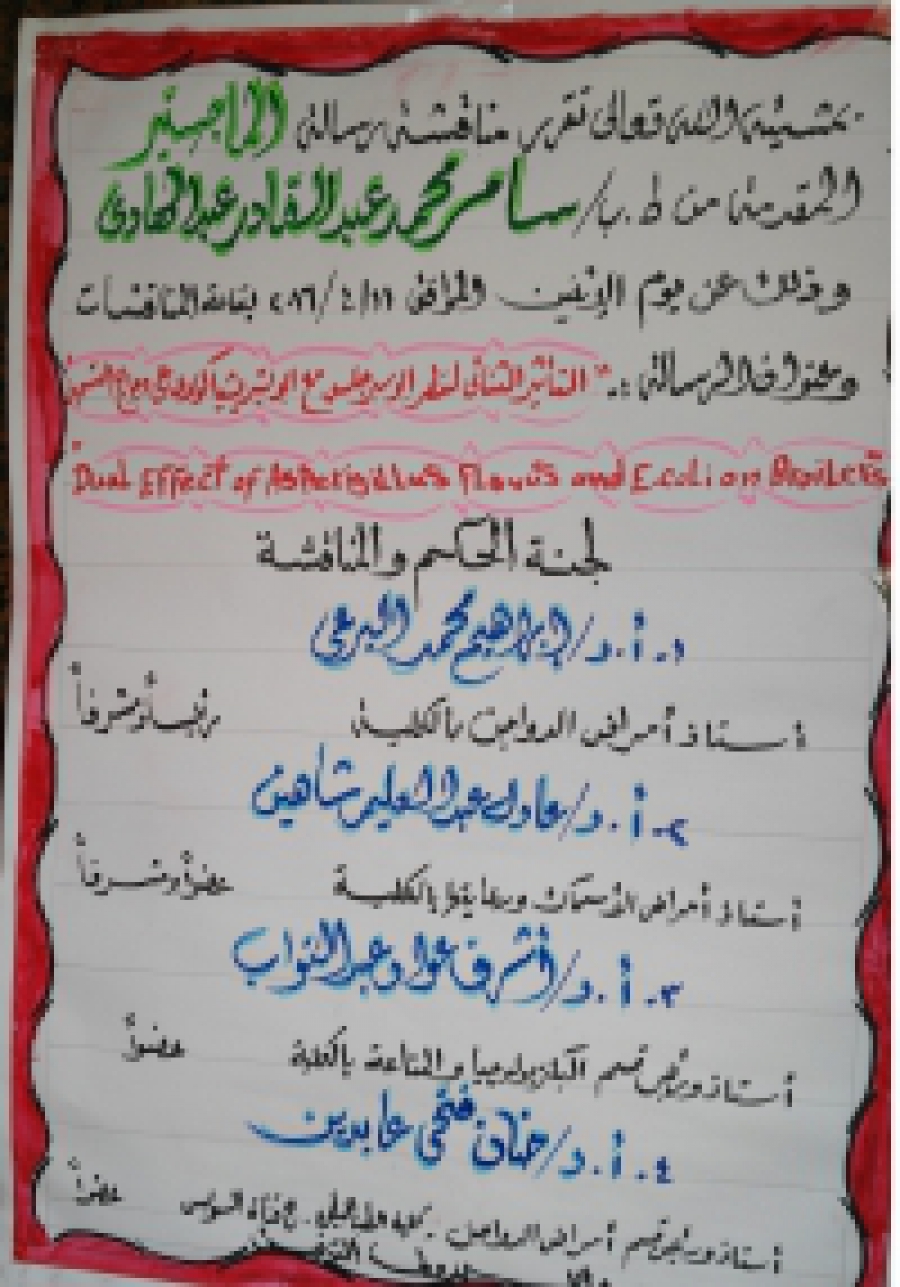 بمشيئة الله تعالى تقرر مناقشة رسالة الماجستير
المقدمة من ط.ب/ سامر محمد عبد القادر عبد الهادى
وذلك عن يوم الإثنين الموافق ٢٠١٦/٤/١١ بقاعة المناقشات
وعنوان الرسالة :. " التأثير الثنائى لفطر الاسبرجلس مع الايشريشيا كولاى
"Dual Effect of Aspergillus Flavus and E.coli on Broilers"
لجنة الحكم والمناقشة
١. أ.د/ ابراهيم محمد البرعى
أستاذ أمراض الدواجن بالكلية رئيساً ومشرفاً
٢. أ.د/ عادل عبد العليم شاهين
أستاذ أمراض الأسماك ورعايتها بالكلية عضواً ومشرفاً
٣. أ.د/ أشرف عواد عبد التواب
أستاذ ورئيس قسم البكتريولوجيا والمناعة بالكلية عضواً
٤. أ.د/ حنان فتحى عابدين
أستاذ ورئيس قسم أمراض الدواجن - قناة السويس عضواً